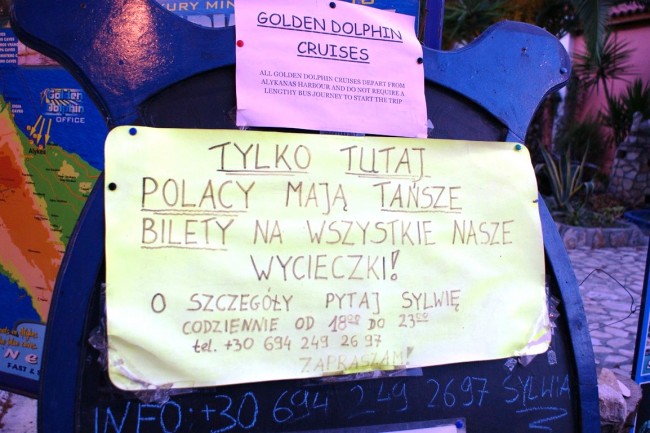 URY MIN
GOLDEN DOLPHIN
CRUISES
ALL GOLDEN DOLPHIN CRUISES DEPART FROM
ALYKANAS HARBOUR AND DO NOT REQUIRE A
LENGTHY BUS JOURNEY TO START THE TRIP
Golden
dolphin
OFFICE
TYLKO TUTAJ
POLACY MAJĄ TAŃSZE
BILETY NA WSZYSTKIE NASZE
WYCIECZKI!
O SZCZEGÓŁY PYTAJ SYLWIĘ
CODZIENNIE OD 1800 DO 2300
tel. +30 694 249 26 97
ZAPRASZAM!
INFO: +30 694 249 2697 SYLWIA
FAST &